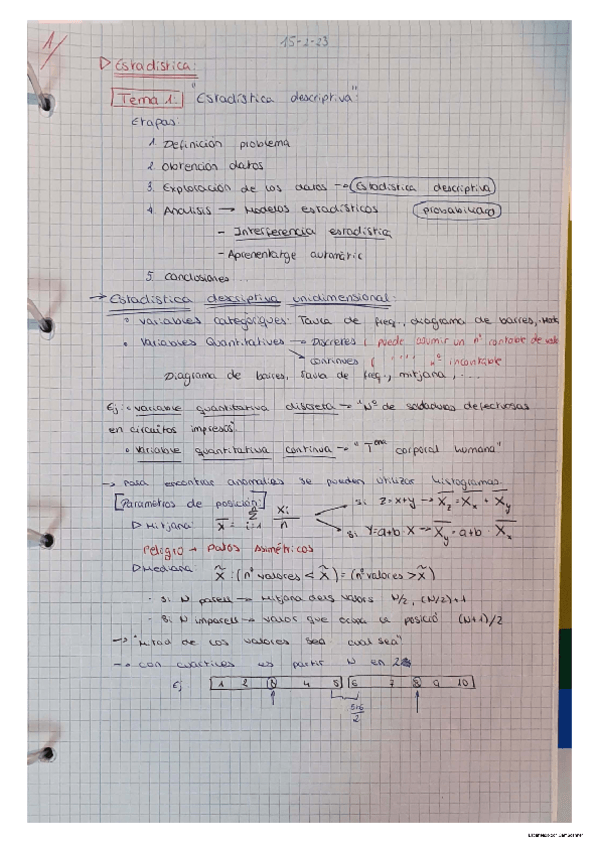 1/
15-2-23
▷ Estadística:
Tema 1: "Estadística descriptiva":
Etapas:
1. Definición problema
2. Obtención datos
3. Exploración de los datos → Estadística descriptiva
4. Analisis → Modelos estadísticos (probabilidad)
- Interferencia estradística
- Aprenentatge automàtic
5. Conclusiones...
→ Estadística descriptiva unidimensional:
• Variables categòriques: Taula de freq., diagrama de barres,
• Variables Quantitatives → Discretes ( puede asumir un nº contable de
→ continues ( " " " nº incontable
Diagrama de barres, taula de freq., mitjana, ...
Ej: • variable quantitativa discreta → "Nº de soldaduras defectuosas
en circuitos impresos"
• variable quantitativa continua → "Tª corporal humana"
→ Para encontrar anomalias se pueden utilizar histogramas.
[Parámetros de posición:]
▷ Mitjana: X̄ = Σ i=1 n xi/n
si z=x+y → X̄z = X̄x + X̄y
si Y=a+b·X → X̄y = a+b · X̄x
Peligro → Datos Asimétricos
▷ Mediana: X̃ : (nº valores < X̃) = (nº valores > X̃)
· Si N parell → Mitjana dels valors N/2, (N/2)+1
· Si N imparell → valor que ocupa la posició (N+1)/2
→ "Mitad de los valores sea cual sea"
→ con cuartiles es partir N en
Ej 1 2 3 4 5 6 7 8 9 10
5+6/2